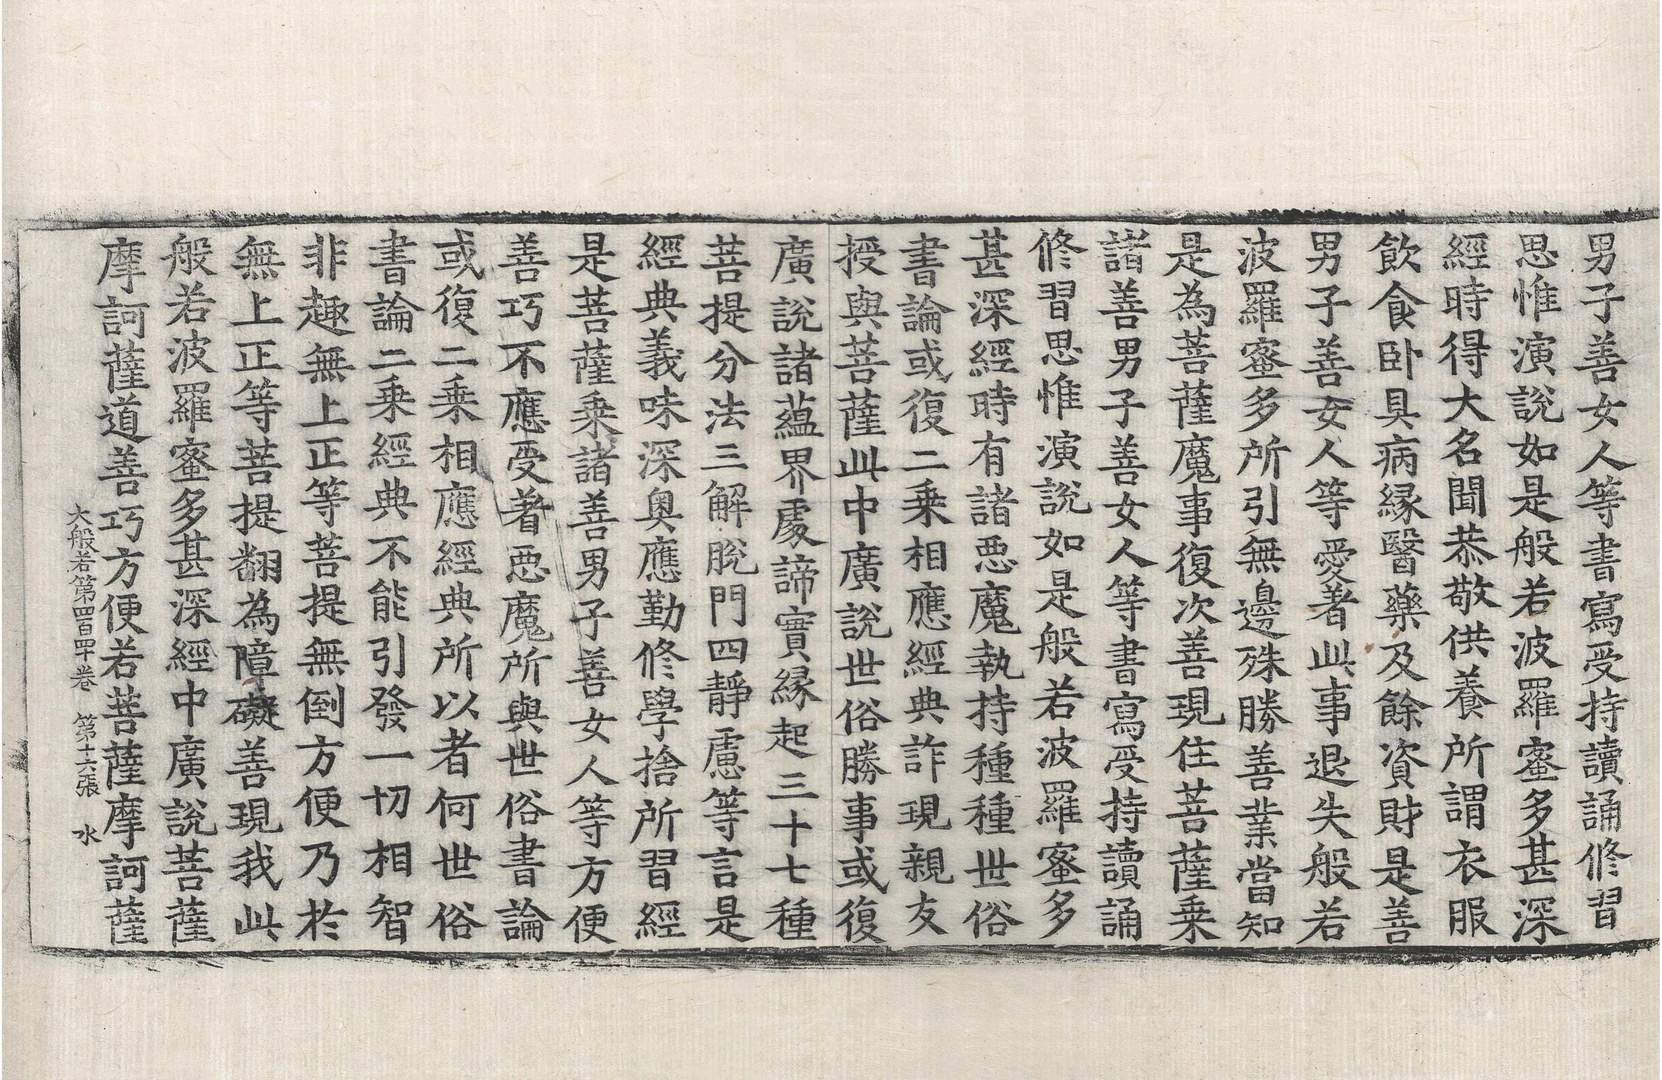 男子善女人等書寫受持讀誦修習
思惟演說如是般若波羅蜜多甚深
經時得大名聞恭敬供養所謂衣服
飲食卧具病緣醫藥及餘資財是善
男子善女人等愛著此事退失般若
波羅蜜多所引無邊殊勝善業當知
是為菩薩魔事復次善現住菩薩乘
諸善男子善女人等書寫受持讀誦
修習思惟演說如是般若波羅蜜多
甚深經時有諸惡魔執持種種世俗
書論或復二乘相應經典詐現親友
授與菩薩此中廣說世俗勝事或復
廣說諸蘊界處諦實緣起三十七種
菩提分法三解脫門四靜慮等言是
經典義味深奧應勤修學捨所習經
是菩薩乘諸善男子善女人等方便
善巧不應受著惡魔所與世俗書論
或復二乘相應經典所以者何世俗
書論二乘經典不能引發一切相智
非趣無上正等菩提無倒方便乃於
無上正等菩提翻為障礙善現我此
般若波羅蜜多甚深經中廣說菩薩
摩訶薩道善巧方便若菩薩摩訶薩
大般若第四百四十卷 第十六張 水